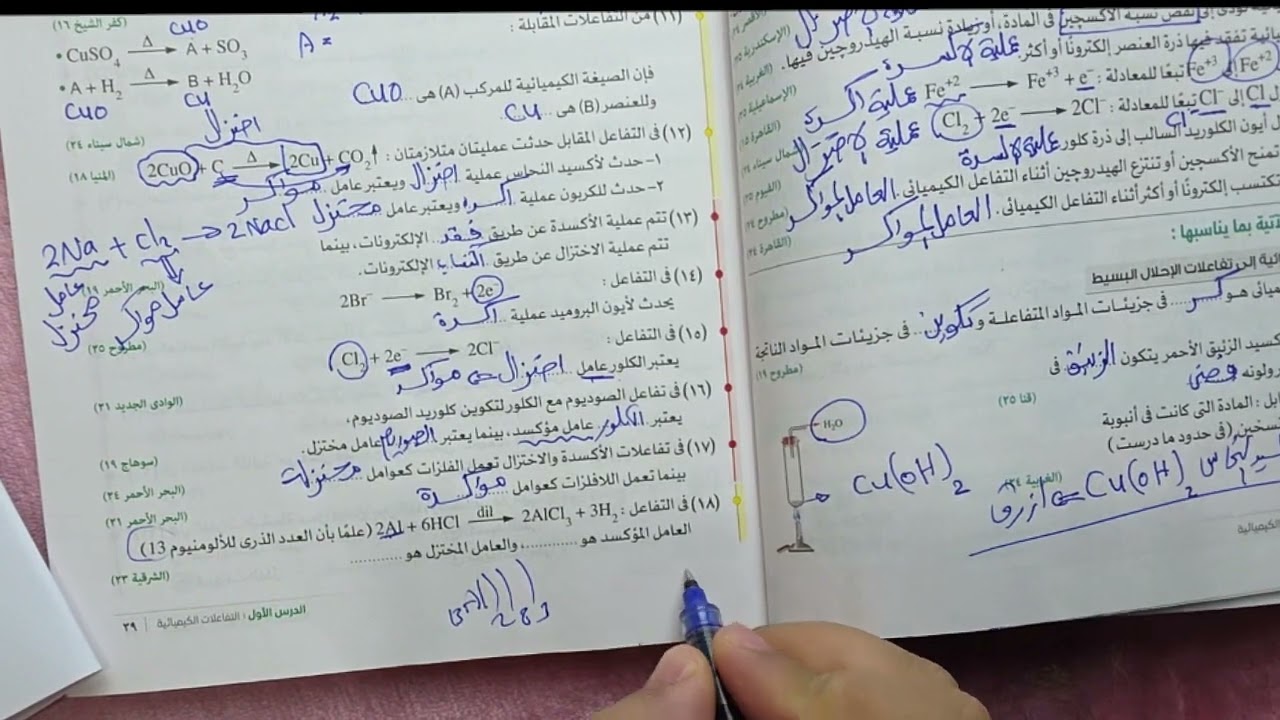 (١١) من التفاعلات المقابلة :
(كفر الشيخ ١٦)
CuO
• CuSO₄ —Δ→ A + SO₃
A =
• A + H₂ —Δ→ B + H₂O
CuO Cu
فإن الصيغة الكيميائية للمركب (A) هى ... CuO
وللعنصر (B) هى .. Cu
(شمال سيناء ٢٤)
اختزال
(١٢) فى التفاعل المقابل حدثت عمليتان متلازمتان : 2CuO + C —Δ→ 2Cu + CO₂↑
(المنيا ١٨)
١- حدث لأكسيد النحاس عملية اختزال ويعتبر عامل مؤاكسد
٢- حدث للكربون عملية أكسدة ويعتبر عامل مختزل
2Na + Cl₂ → 2NaCl
عامل مختزل
عامل مؤاكسد
(١٣) تتم عملية الأكسدة عن طريق فقد الإلكترونات، بينما
تتم عملية الاختزال عن طريق اكتساب الإلكترونات.
(البحر الأحمر ١٩)
(١٤) فى التفاعل : 2Br⁻ → Br₂ + 2e⁻
يحدث لأيون البروميد عملية أكسدة
(مطروح ٢٥)
(١٥) فى التفاعل : Cl₂ + 2e⁻ → 2Cl⁻
يعتبر الكلور عامل اختزال مؤاكسد
(الوادى الجديد ٢١)
(١٦) فى تفاعل الصوديوم مع الكلور لتكوين كلوريد الصوديوم،
يعتبر الكلور عامل مؤكسد، بينما يعتبر الصوديوم عامل مختزل.
(سوهاج ١٩)
(١٧) فى تفاعلات الأكسدة والاختزال تعمل الفلزات كعوامل مختزلة
(البحر الأحمر ٢٤)
بينما تعمل اللافلزات كعوامل مؤاكسدة
(البحر الأحمر ٢١)
(١٨) فى التفاعل : 2Al + 6HCl —dil→ 2AlCl₃ + 3H₂ (علمًا بأن العدد الذرى للألومنيوم 13)
العامل المؤكسد هو ............، والعامل المختزل هو ............
(الشرقية ٢٣)
2 8 3
الدرس الأول : التفاعلات الكيميائية | ٣٩
نقص نسبة الأكسجين فى المادة، أو زيادة نسبة الهيدروجين فيها.
(الإسكندرية
يائية تفقد فيها ذرة العنصر إلكترونًا أو أكثر. عملية الأكسدة
Fe⁺² إلى Fe⁺³ تبعًا للمعادلة : Fe⁺² → Fe⁺³ + e⁻ عملية أكسدة
(الإسماعيلية
ل Cl إلى Cl⁻ تبعًا للمعادلة : Cl₂ + 2e⁻ → 2Cl⁻ عملية الاختزال
(القاهرة
ل أيون الكلوريد السالب إلى ذرة كلور عملية الأكسدة
(شمال سيناء
تمنح الأكسجين أو تنتزع الهيدروجين أثناء التفاعل الكيميائى. العامل المؤاكسد
تكتسب إلكترونًا أو أكثر أثناء التفاعل الكيميائى. العامل المؤاكسد
(القاهرة ٢٤)
لآتية بما يناسبها :
ائية إلى تفاعلات الإحلال البسيط
ميائى هو كسر فى جزيئات المواد المتفاعلة و تكوين فى جزيئات المواد الناتجة
(مطروح ١٩)
كسيد الزئبق الأحمر يتكون الزئبق فى
ولونه فضى
(قنا ٢٥)
ابل : المادة التى كانت فى أنبوبة
سخين (فى حدود ما درست)
H₂O
Cu(OH)₂
Cu(OH)₂
أزرق
الكيميائية